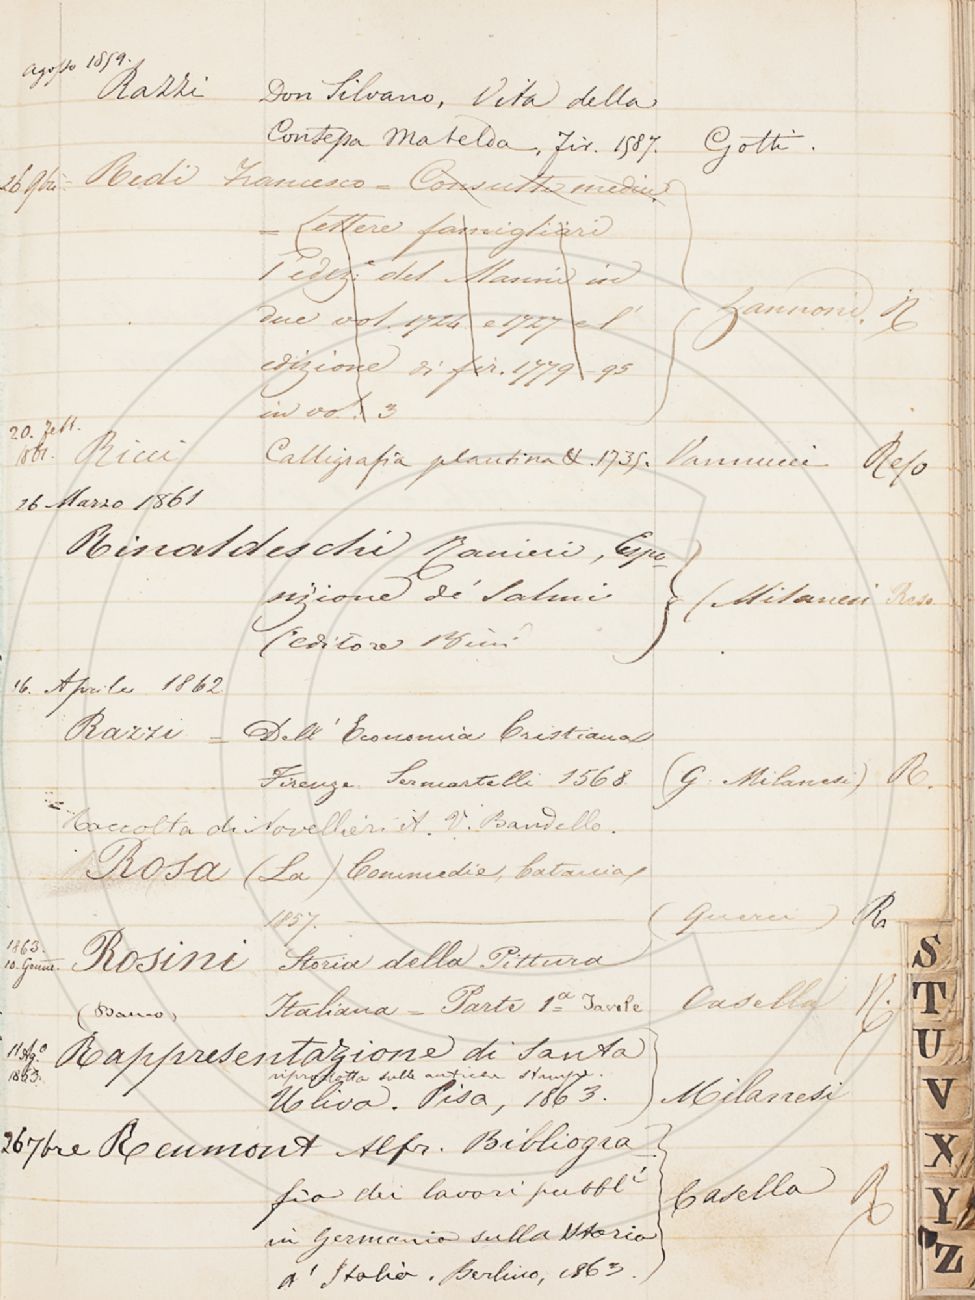 Agosto 1859.
Razzi Don Silvano, Vita della
Contessa Matelda, Fir. 1587. Gotti.
26 9bre Redi Francesco = Consulti medici
= Lettere famigliari
l'ediz. del Manni in
due vol. 1724 e 1727 e l'
edizione di fir. 1779-95
in vol. 3
Zannoni. R
20. Febb.
1861. Ricci Calligrafia plantina & .1735. Vannucci Reso
26 Marzo 1861
Rinaldeschi Ranieri, Espo-
sizione de' Salmi
(editore
(Milanesi Reso
16. Aprile 1862
Razzi = Dell' Economia Cristiana
Firenze Sermartelli 1568 (G. Milanesi) R.
Raccolta di Novellieri It. V. Bandello.
Rosa (La) Commedie, Catania
1857. (Querci) R
1863.
10. Rosini Storia della Pittura
Italiana = Parte 1ª Tavole Casella R.
11 Ago
1863. Rappresentazione di Santa
riprodotta sulle antiche stampe.
Uliva. Pisa, 1863. Milanesi
26 7bre Reumont Alfr. Bibliogra-
fia dei lavori pubbl'
in Germania sulla Storia
d'Italia. Berlino, 1863. Casella R
S
T
U
V
X
Y
Z